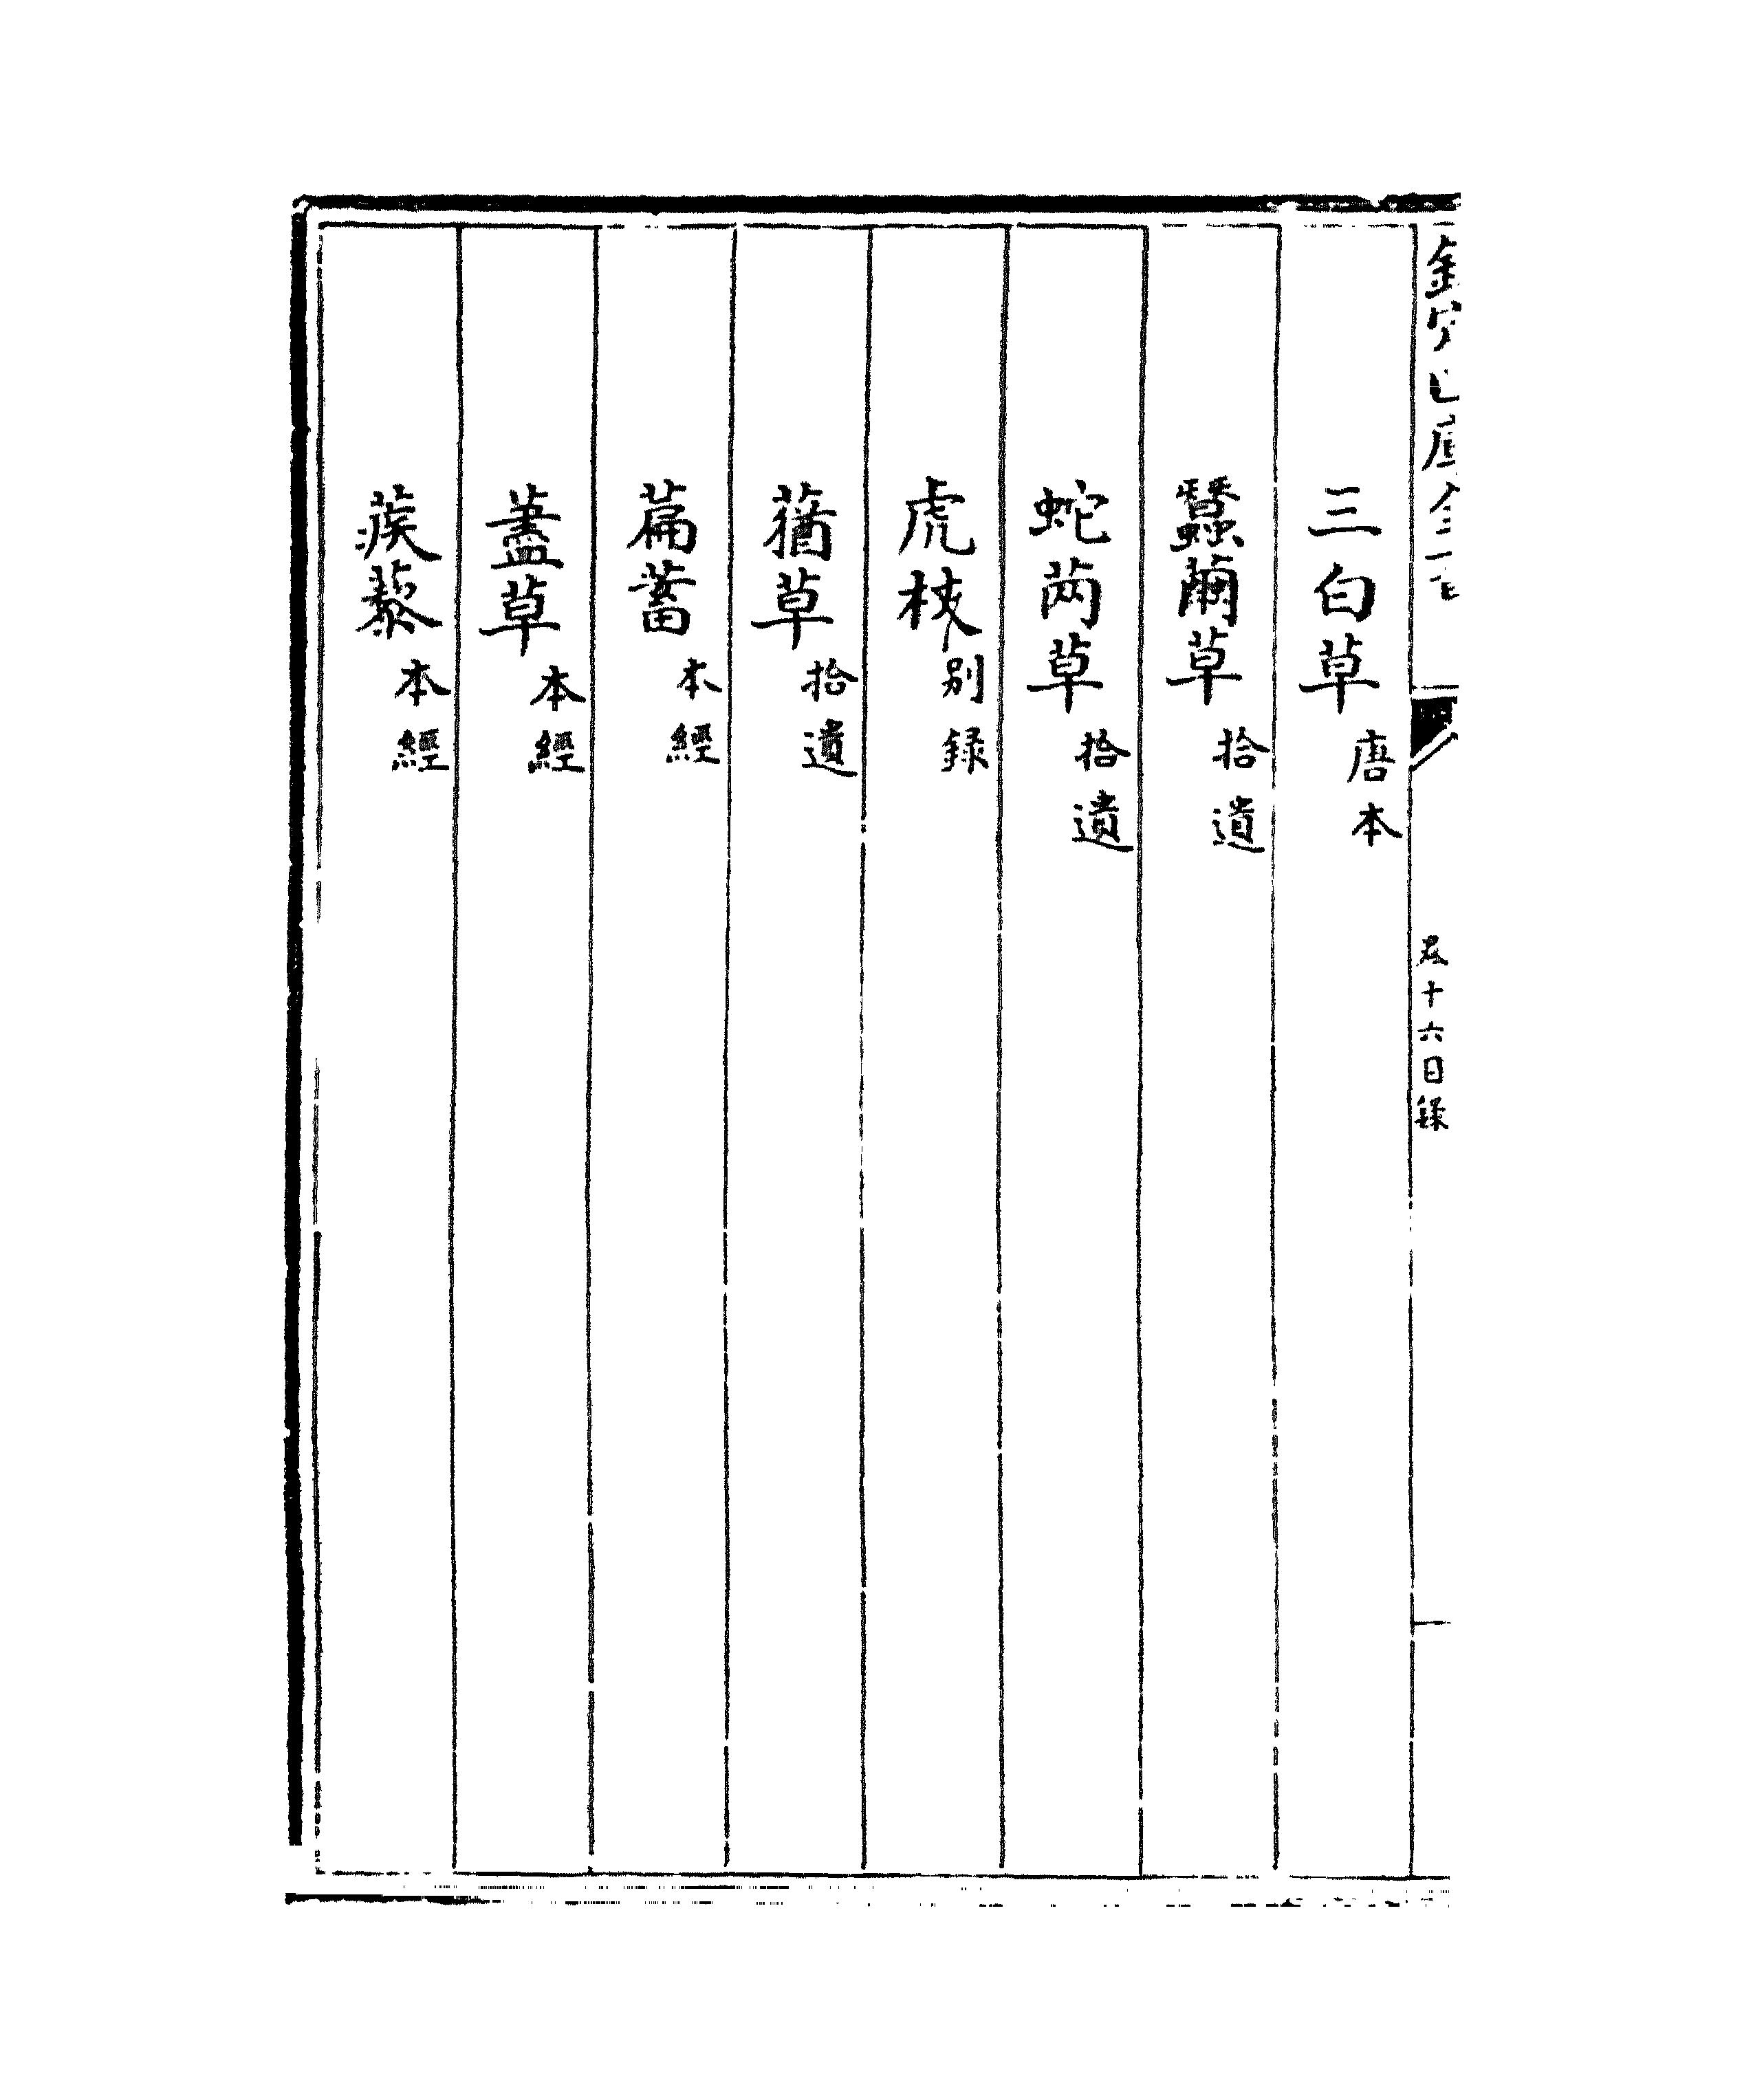 欽定四庫全書
卷十六目錄
三白草唐本
蠶繭草拾遺
蛇芮草拾遺
虎杖别録
蕕草拾遺
萹蓄本經
藎草本經
蒺藜本經